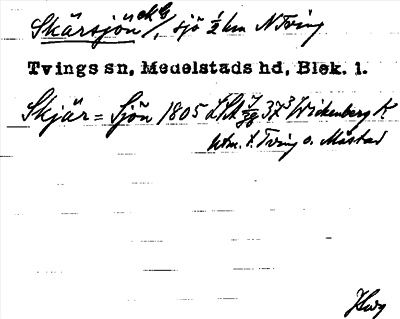 Skärsjön, sjö ½ km N Tving
Tvings sn, Medelstads hd, Blek. l.
Skjär=Sjön 1805 LSA 37³ Wickenberg K
utm. t. Tving o. Måstad